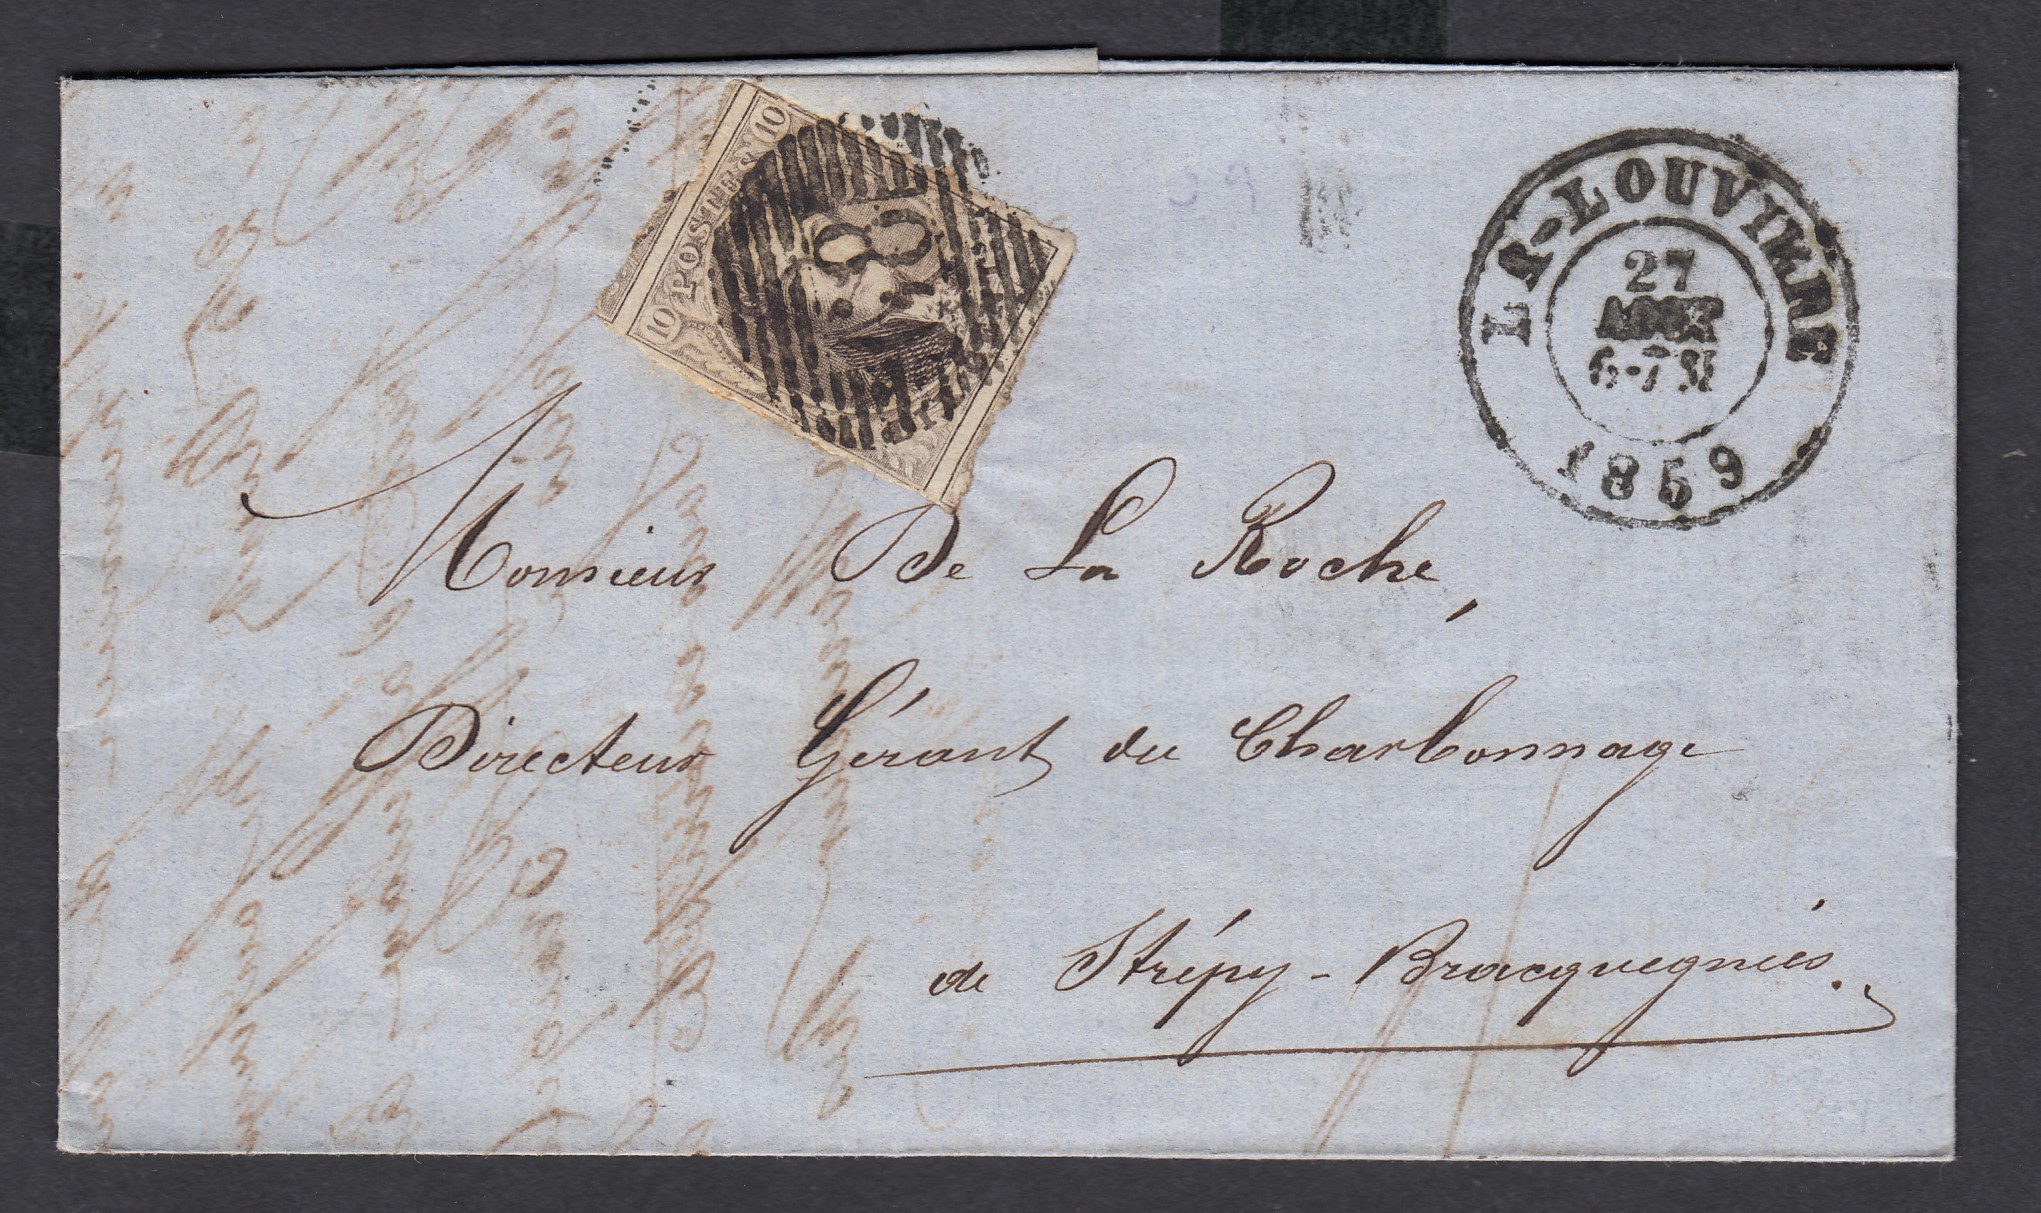 10 POSTES 10
LA-LOUVIÈRE
27
AOUT
6-7 M
1859
Monsieur De La Roche,
Directeur Gérant du Charbonnage
de Strépy-Bracquegnies.